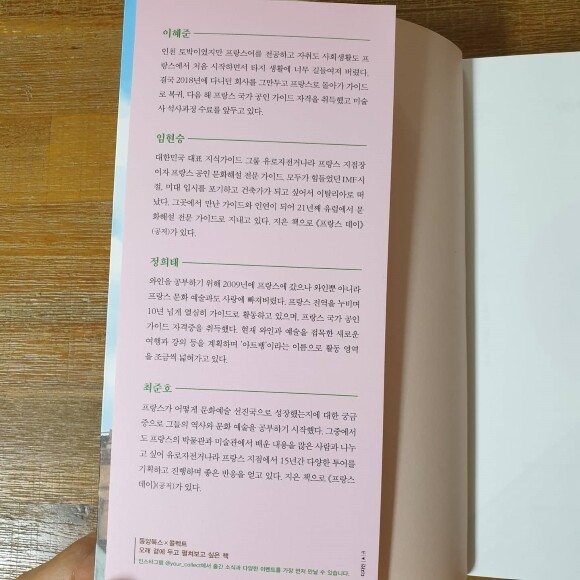 이혜준
인천 토박이였지만 프랑스어를 전공하고 자취도 사회생활도 프
랑스에서 처음 시작하면서 타지 생활에 너무 길들여져 버렸다.
결국 2018년에 다니던 회사를 그만두고 프랑스로 돌아가 가이드
로 복귀, 다음 해 프랑스 국가 공인 가이드 자격을 취득했고 미술
사 석사과정 수료를 앞두고 있다.
임현승
대한민국 대표 지식가이드 그룹 유로자전거나라 프랑스 지점장
이자 프랑스 공인 문화해설 전문 가이드. 모두가 힘들었던 IMF 시
절, 미대 입시를 포기하고 건축가가 되고 싶어서 이탈리아로 떠
났다. 그곳에서 만난 가이드와 인연이 되어 21년째 유럽에서 문
화해설 전문 가이드로 지내고 있다. 지은 책으로 《프랑스 데이》
(공저)가 있다.
정희태
와인을 공부하기 위해 2009년에 프랑스에 갔으나 와인뿐 아니라
프랑스 문화 예술과도 사랑에 빠져버렸다. 프랑스 전역을 누비며
10년 넘게 열심히 가이드로 활동하고 있으며, 프랑스 국가 공인
가이드 자격증을 취득했다. 현재 와인과 예술을 접목한 새로운
여행과 강의 등을 계획하며 '아트뱅'이라는 이름으로 활동 영역
을 조금씩 넓혀가고 있다.
최준호
프랑스가 어떻게 문화예술 선진국으로 성장했는지에 대한 궁금
증으로 그들의 역사와 문화 예술을 공부하기 시작했다. 그중에서
도 프랑스의 박물관과 미술관에서 배운 내용을 많은 사람과 나누
고 싶어 유로자전거나라 프랑스 지점에서 15년간 다양한 투어를
기획하고 진행하며 좋은 반응을 얻고 있다. 지은 책으로 《프랑스
데이》(공저)가 있다.
동양북스×플렉트
오래 곁에 두고 펼쳐보고 싶은 책
인스타그램 @your_collect에서 출간 소식과 다양한 이벤트를 가장 먼저 만날 수 있습니다.